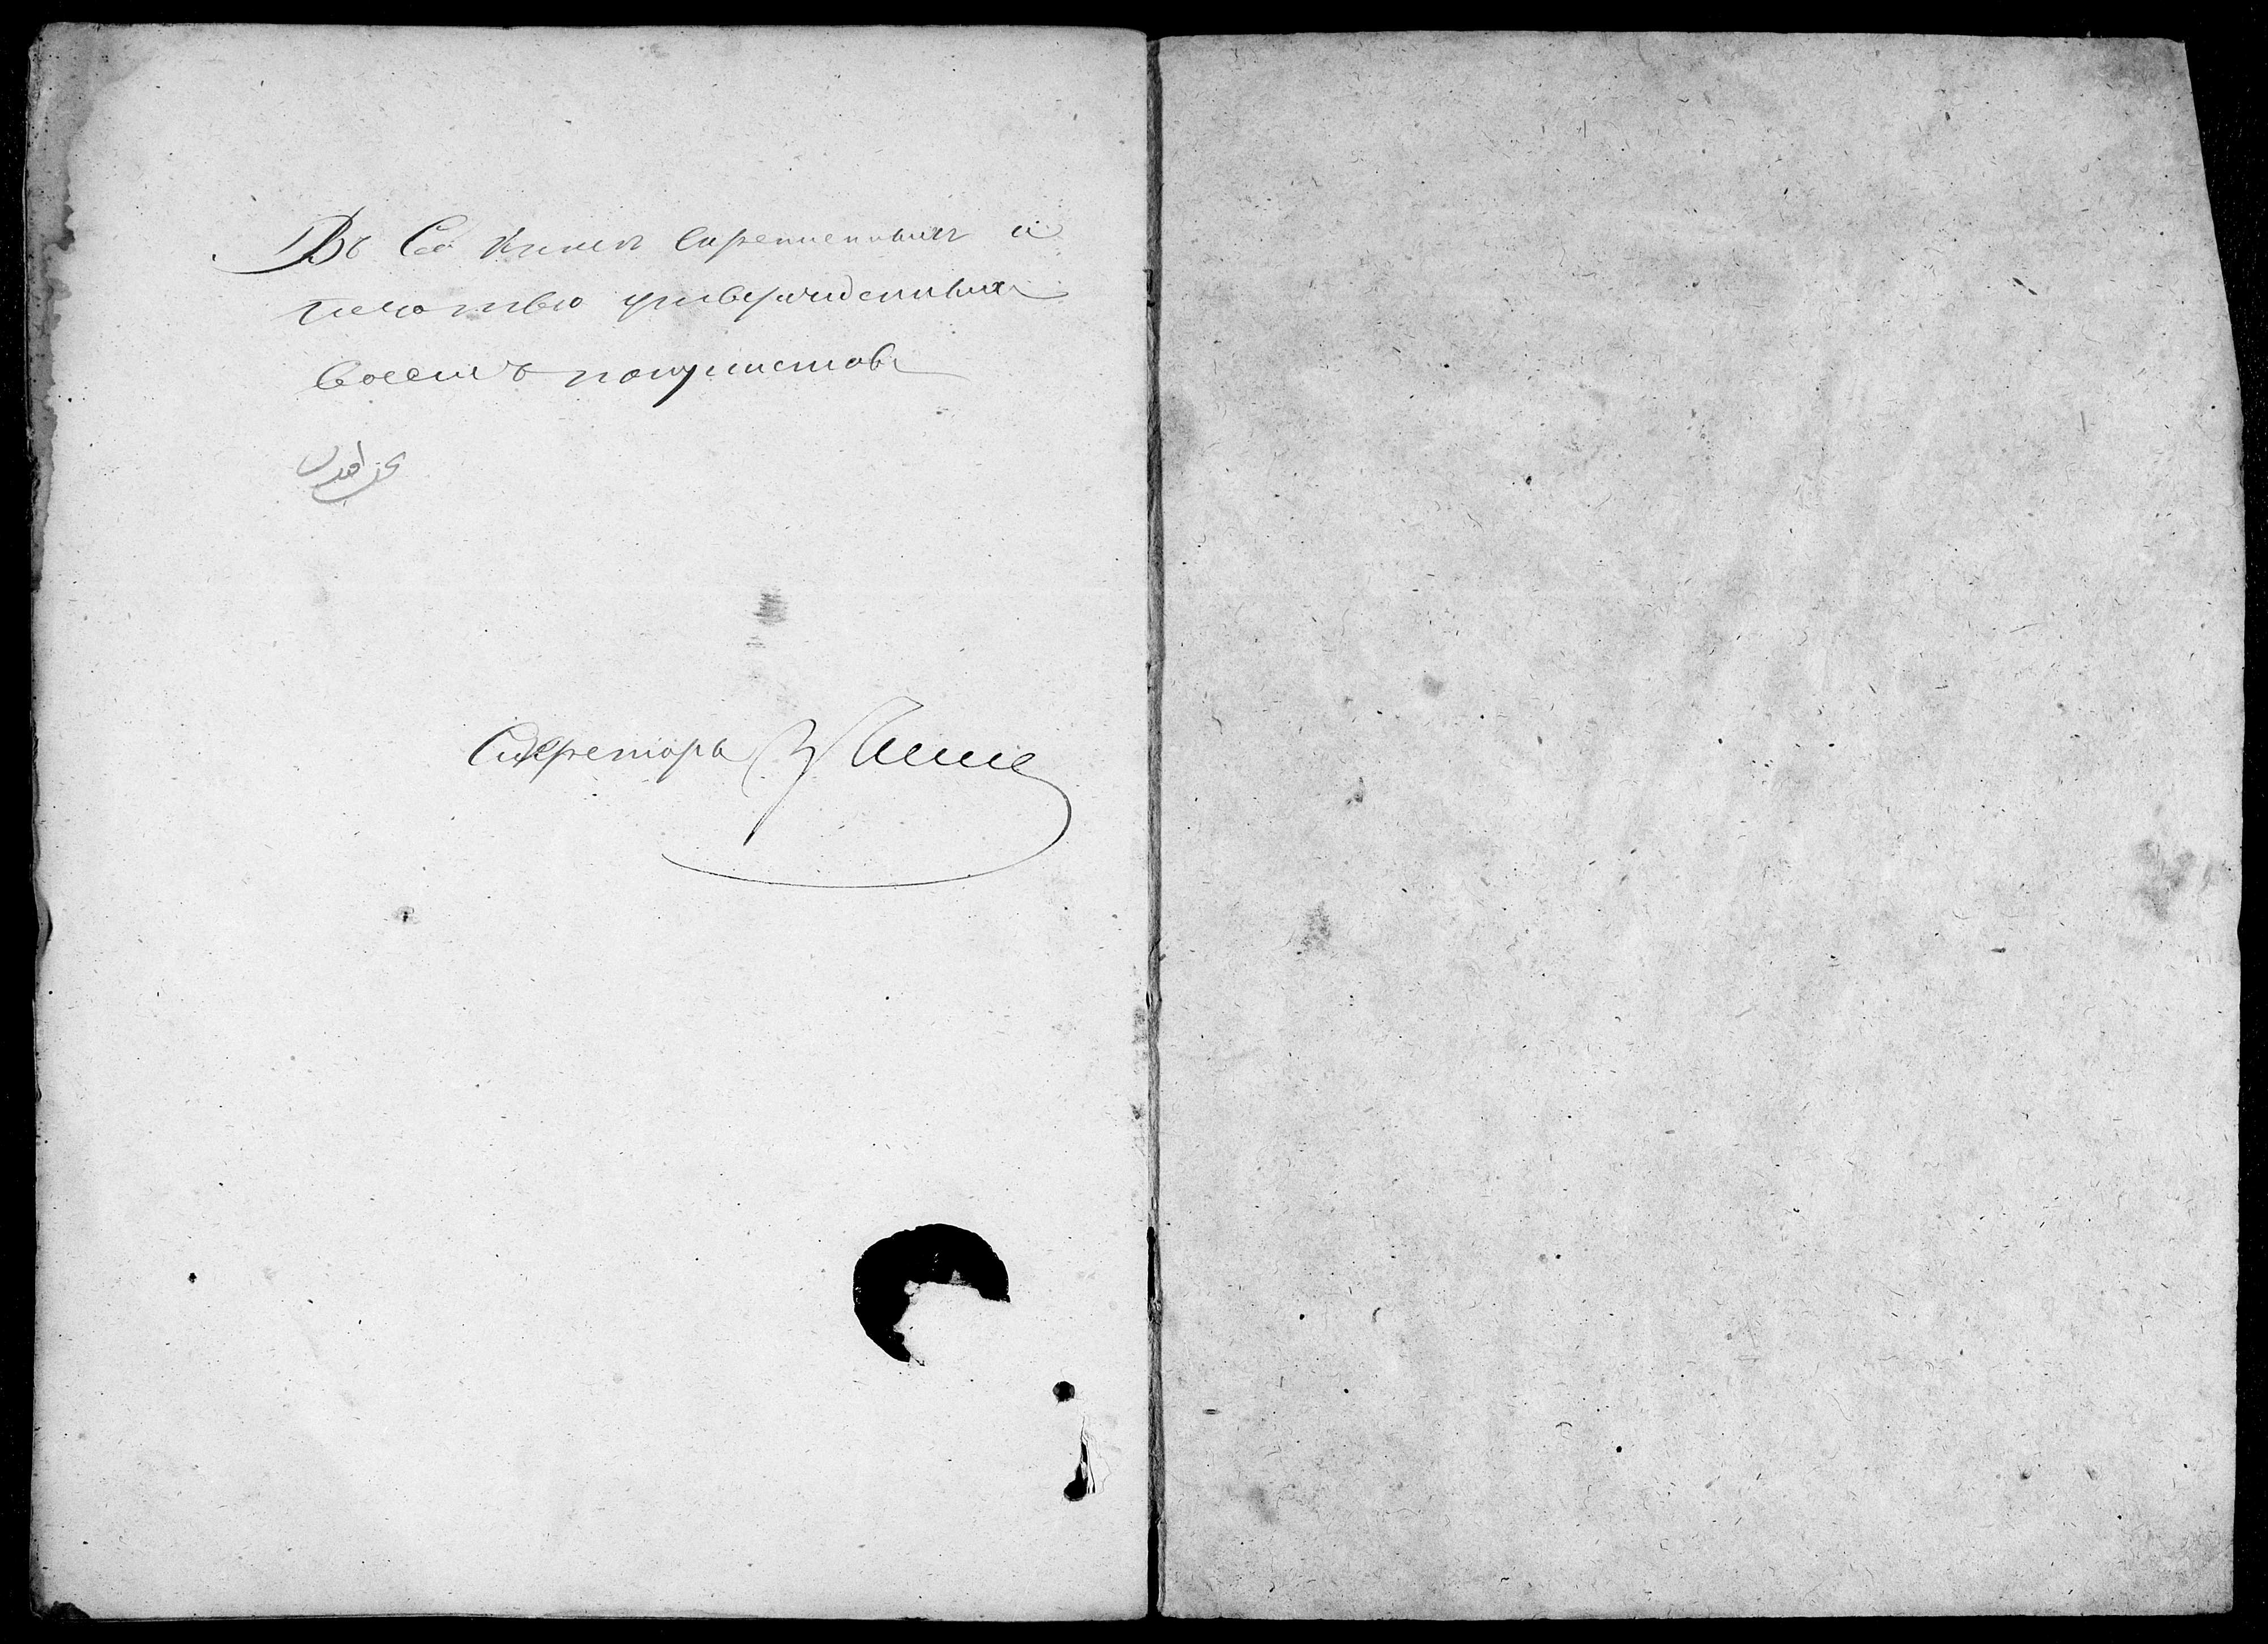 Въ Сей книгѣ скрепленныхъ и
печатью утвержденныхъ
восемь полулистовъ
Секретарь